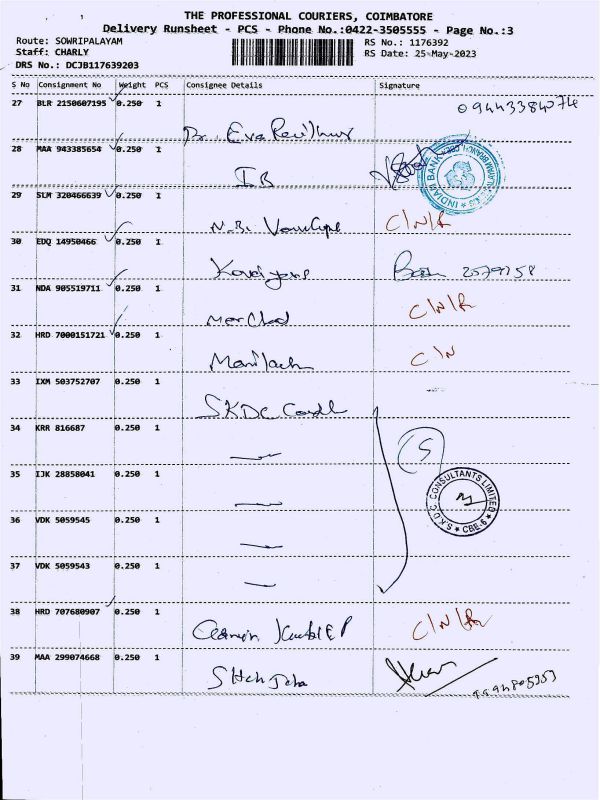 THE PROFESSIONAL COURIERS, COIMBATORE
Delivery Runsheet - PCS - Phone No.:0422-3505555 - Page No.:3
Route: SOWRIPALAYAM RS No.: 1176392
Staff: CHARLY RS Date: 25-May-2023
DRS No.: DCJB117639203
S No Consignment No Weight PCS Consignee Details Signature
27 BLR 2150607195 0.250 1
28 MAA 943385654 0.250 1 IB INDIAN BANK
29 SLM 320466639 0.250 1 C/N/R
30 EDQ 14950466 0.250 1
31 NDA 905519711 0.250 1 C/N/R
32 HRD 7000151721 0.250 1 C/N
33 IXM 503752707 0.250 1 SKDC
34 KRR 816687 0.250 1 5
35 IJK 28858041 0.250 1 S.K.D.C. CONSULTANTS LIMITED CBE-6
36 VDK 5059545 0.250 1
37 VDK 5059543 0.250 1
38 HRD 707680907 0.250 1 C/N/R
39 MAA 299074668 0.250 1